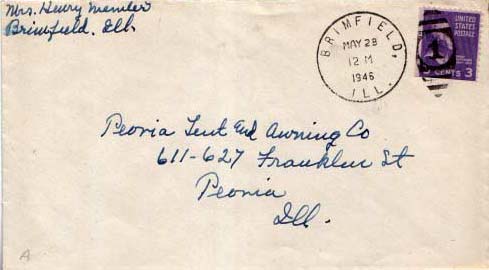 Mrs. Henry Memler
Brimfield, Ill.
BRIMFIELD,
MAY 28
12 M
1946
ILL.
UNITED
STATES
POSTAGE
1
CENTS 3
Peoria Tent and Awning Co
611-627 Franklin St
Peoria
Ill.
A